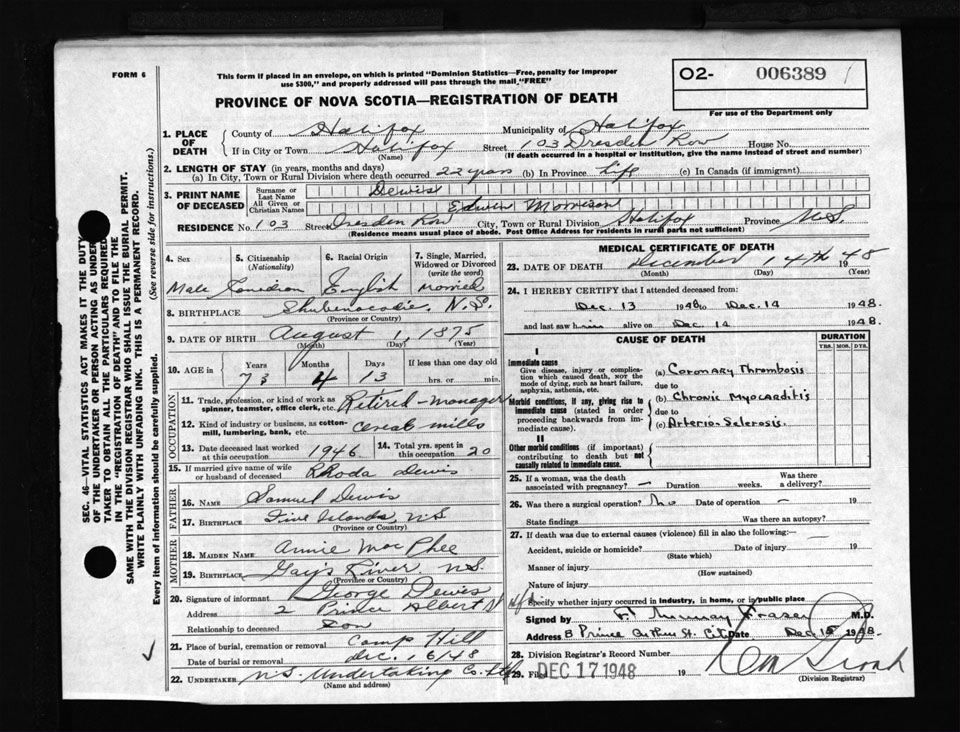 FORM 6
This form if placed in an envelope, on which is printed "Dominion Statistics—Free, penalty for improper
use $300," and properly addressed will pass through the mail, "FREE"
PROVINCE OF NOVA SCOTIA—REGISTRATION OF DEATH
O2- 006389
For use of the Department only
1. PLACE OF DEATH
County of Halifax Municipality of Halifax
If in City or Town Halifax Street 103 Dresden Row House No.
(Name) (If death occurred in a hospital or institution, give the name instead of street and number)
2. LENGTH OF STAY (in years, months and days)
(a) In City, Town or Rural Division where death occurred 22 years (b) In Province Life (c) In Canada (if immigrant)
3. PRINT NAME OF DECEASED
Surname or Last Name Dewis
All Given or Christian Names Edwin Morrison
RESIDENCE No. 103 Street Dresden Row City, Town or Rural Division Halifax Province N.S.
(Residence means usual place of abode. Post Office Address for residents in rural parts not sufficient)
4. Sex Male
5. Citizenship (Nationality) Canadian
6. Racial Origin English
7. Single, Married, Widowed or Divorced (write the word) Married
8. BIRTHPLACE Shubenacadie, N.S.
(Province or Country)
9. DATE OF BIRTH August, 1875
(Month) (Day) (Year)
10. AGE in Years 73 Months 4 Days 13 If less than one day old hrs. or min.
OCCUPATION
11. Trade, profession, or kind of work as spinner, teamster, office clerk, etc. Retired - manager
12. Kind of industry or business, as cotton-mill, lumbering, bank, etc. Cereal mills
13. Date deceased last worked at this occupation 1946
14. Total yrs. spent in this occupation 20
15. If married give name of wife or husband of deceased Rhoda Dewis
FATHER
16. NAME Samuel Dewis
17. BIRTHPLACE Five Islands N.S.
(Province or Country)
MOTHER
18. MAIDEN NAME Annie MacPhee
19. BIRTHPLACE Gay's River N.S.
(Province or Country)
20. Signature of informant George Dewis
Address 2 Prince Albert
Relationship to deceased Son
21. Place of burial, cremation or removal Camp Hill
Date of burial or removal Dec. 16/48
22. UNDERTAKER N.S. Undertaking Co. Ltd
(Name and address)
MEDICAL CERTIFICATE OF DEATH
23. DATE OF DEATH December 14th 1948
(Month) (Day) (Year)
24. I HEREBY CERTIFY that I attended deceased from:
Dec. 13 1948 to Dec. 14 1948.
and last saw him alive on Dec 14 1948.
CAUSE OF DEATH
DURATION
YRS. MOS. DYS.
I
Immediate cause
Give disease, injury or complication which caused death, not the mode of dying, such as heart failure, asphyxia, asthenia, etc.
(a) Coronary Thrombosis
due to
Morbid conditions, if any, giving rise to immediate cause (stated in order proceeding backwards from immediate cause).
(b) Chronic Myocarditis
due to
(c) Arterio-Sclerosis.
II
Other morbid conditions (if important) contributing to death but not causally related to immediate cause.
25. If a woman, was the death associated with pregnancy? — Duration weeks. Was there a delivery?
26. Was there a surgical operation? No Date of operation — 19
State findings Was there an autopsy?
27. If death was due to external causes (violence) fill in also the following:
Accident, suicide or homicide? Date of injury 19
(State which)
Manner of injury
(How sustained)
Nature of injury
Specify whether injury occurred in industry, in home, or in public place
Signed by Murray Fraser M.D.
Address 8 Prince Arthur St. City Date Dec 15 1948.
28. Division Registrar's Record Number
29. Filed DEC 17 1948 19
(Division Registrar)
SEC. 46—VITAL STATISTICS ACT MAKES IT THE DUTY
OF THE UNDERTAKER OR PERSON ACTING AS UNDER-
TAKER TO OBTAIN ALL THE PARTICULARS REQUIRED
IN THE "REGISTRATION OF DEATH" AND TO FILE THE
SAME WITH THE DIVISION REGISTRAR WHO SHALL ISSUE THE BURIAL PERMIT.
WRITE PLAINLY WITH UNFADING INK. THIS IS A PERMANENT RECORD.
Every item of information should be carefully supplied. (See reverse side for instructions.)